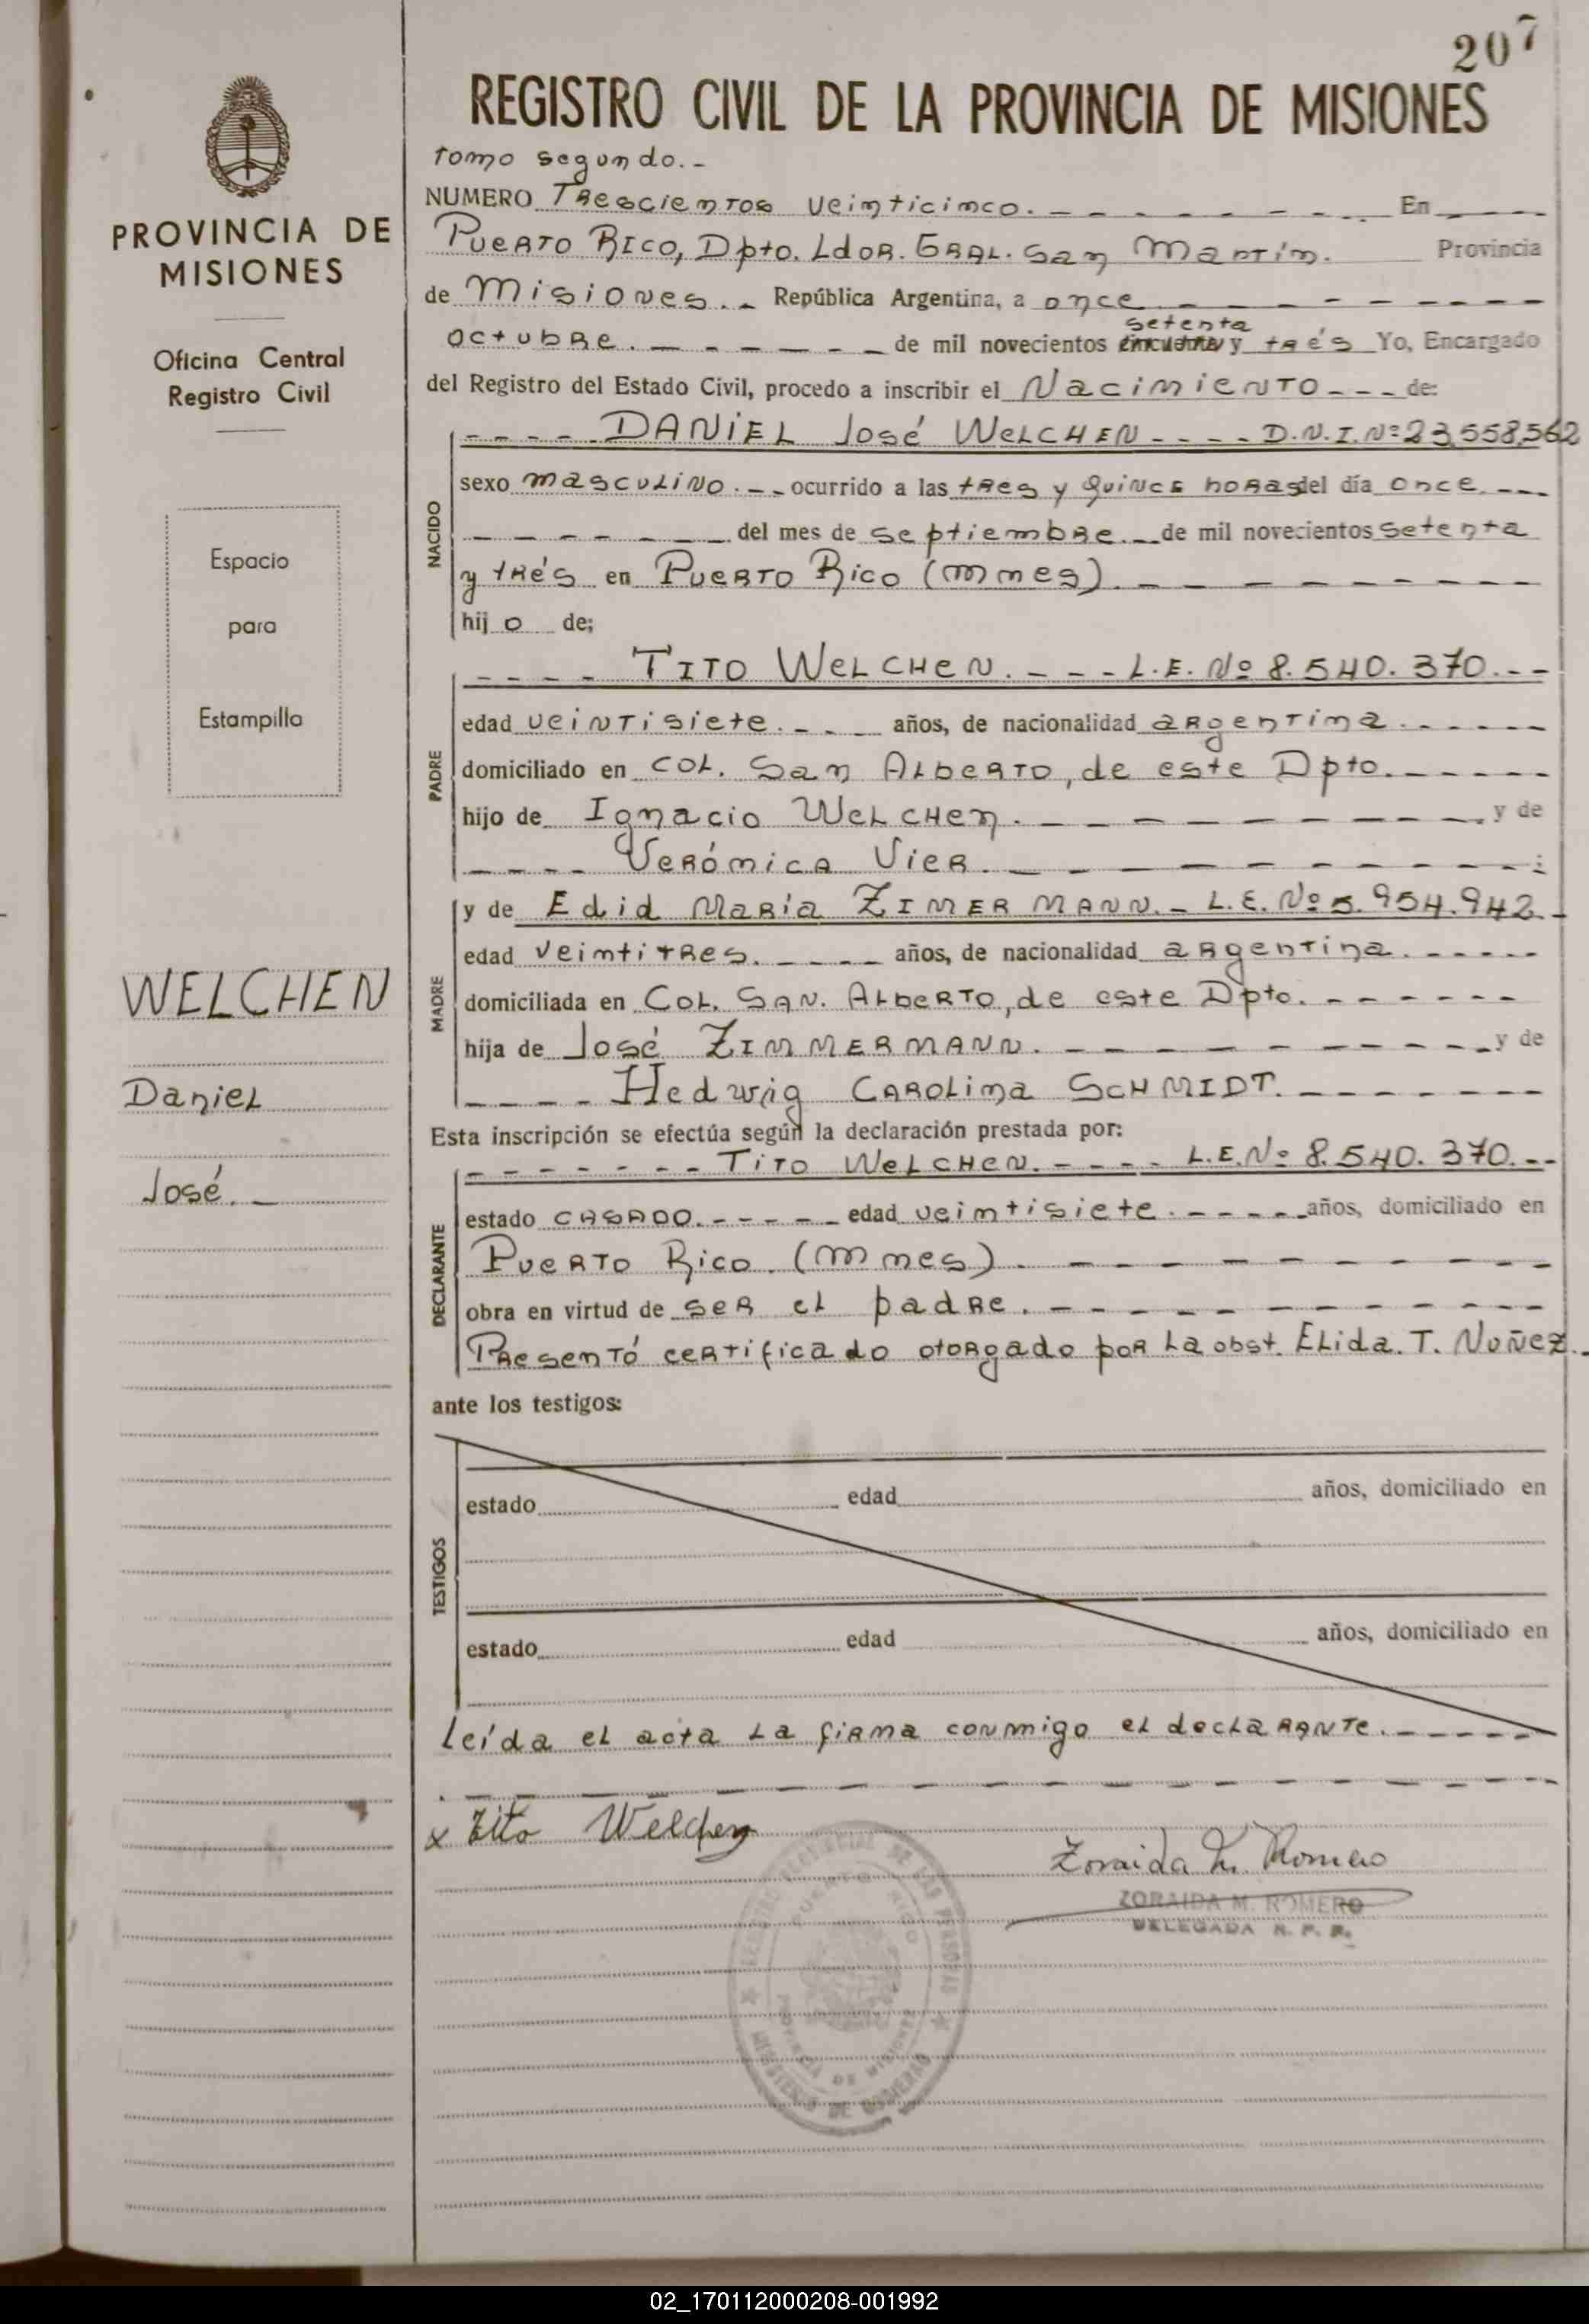 207
REGISTRO CIVIL DE LA PROVINCIA DE MISIONES
PROVINCIA DE
MISIONES
Oficina Central
Registro Civil
Espacio
para
Estampilla
WELCHEN
Daniel
José. _
Tomo segundo. -
NUMERO Trescientos veinticinco. - - - - - - - En
Puerto Rico, Dpto. Ldor. Gral. San Martín. Provincia
de Misiones. - República Argentina, a once - - - - - - - -
setenta
octubre. - - - - - - de mil novecientos cincuenta y trés Yo, Encargado
del Registro del Estado Civil, procedo a inscribir el Nacimiento - - - de:
NACIDO
- - - - - DANIEL José WELCHEN - - - - D.N.I. Nº 23.558.562
sexo masculino. - - ocurrido a las tres y quince horas del día once - - -
- - - - - - - del mes de septiembre. - de mil novecientos setenta
y trés en Puerto Rico (Mnes). - - - - - - - -
hij o de;
PADRE
- - - - TITO WELCHEN. - - - L.E. Nº 8.540.370. - -
edad veintisiete. - - - años, de nacionalidad argentina. - - - - -
domiciliado en Col. San Alberto, de este Dpto. - - - - - -
hijo de Ignacio Welchen. - - - - - - - - - y de
- - - - Verónica Vier. - - - - - - - - :
MADRE
y de Edid María ZIMERMANN. - L.E. Nº 5.954.942. -
edad veintitres. - - - - - años, de nacionalidad argentina. - - - - -
domiciliada en Col. San. Alberto, de este Dpto. - - - - - - -
hija de José ZIMMERMANN. - - - - - - - - - y de
- - - - Hedwig Carolina SCHMIDT. - - - - - - -
Esta inscripción se efectúa según la declaración prestada por:
DECLARANTE
- - - - - - - Tito Welchen. - - - - L.E. Nº 8.540.370. - -
estado casado. - - - - - edad veintisiete. - - - - - años, domiciliado en
Puerto Rico. (Mnes). - - - - - - - - - -
obra en virtud de ser el padre. - - - - - - - - - -
Presentó certificado otorgado por la obst. Elida. T. Nuñez. -
ante los testigos:
TESTIGOS
estado edad años, domiciliado en
estado edad años, domiciliado en
Leída el acta la firma conmigo el declarante. - - - - -
x Tito Welchen
Zoraida M. Romero
ZORAIDA M. ROMERO
DELEGADA R. P. P.
PUERTO RICO
MINISTERIO DE GOBIERNO
02_170112000208-001992